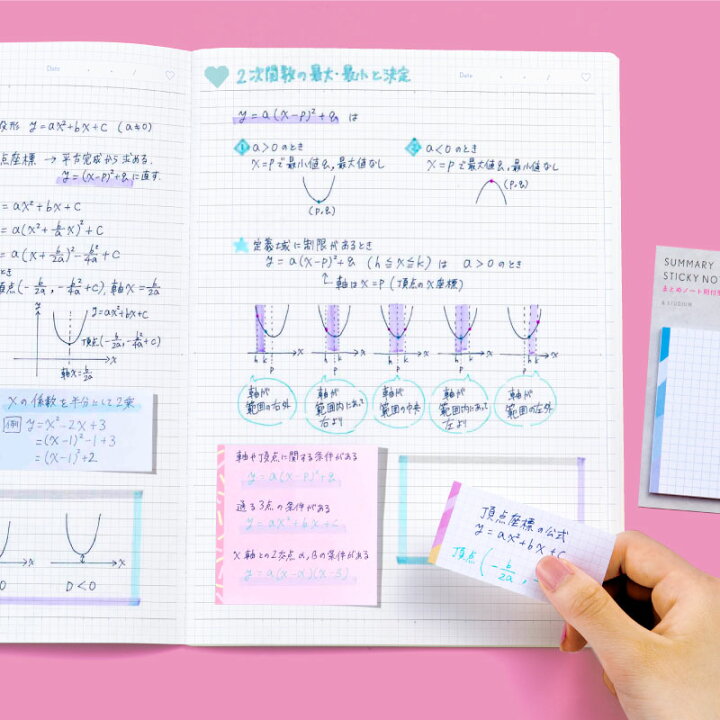 Date
形 y=ax²+bx+c (a≠0)
点座標 → 平方完成から求める。
y=(x-p)²+q に直す。
=ax²+bx+c
=a(x²+b/a x)²+c
=a(x+b/2a)²-b²/4a+c
とき
頂点(-b/2a, -b²/4a+c), 軸x=b/2a
y
y=ax²+bx+c
頂点(-b/2a, -b²/4a+c)
x
軸x=b/2a
xの係数を半分にして2乗
例 y=x²-2x+3
=(x-1)²-1+3
=(x-1)²+2
x
x
0
D<0
2次関数の最大・最小と決定
Date
y=a(x-p)²+q は
① a>0のとき
x=pで最小値q, 最大値なし
(p,q)
② a<0のとき
x=pで最大値q, 最小値なし
(p,q)
★ 定義域に制限があるとき
y=a(x-p)²+q (h≦x≦k) は a>0のとき
軸はx=p (頂点のx座標)
h k p x
h p k x
h p k x
h p k x
p h k x
軸が範囲の右外
軸が範囲内にあって右より
軸が範囲の中央
軸が範囲内にあって左より
軸が範囲の左外
軸や頂点に関する条件がある
y=a(x-p)²+q
通る3点の条件がある
y=ax²+bx+c
x軸との2交点α,βの条件がある
y=a(x-α)(x-β)
頂点座標の公式
y=ax²+bx+c
頂点(-b/2a, -
SUMMARY
STICKY NO
まとめノート用付
& STUDIUM